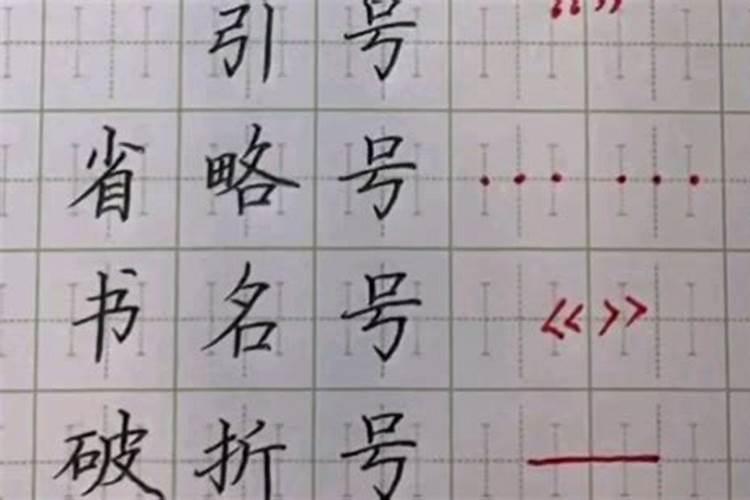 引号 “”
省略号 ……
书名号 《》
破折号 ——